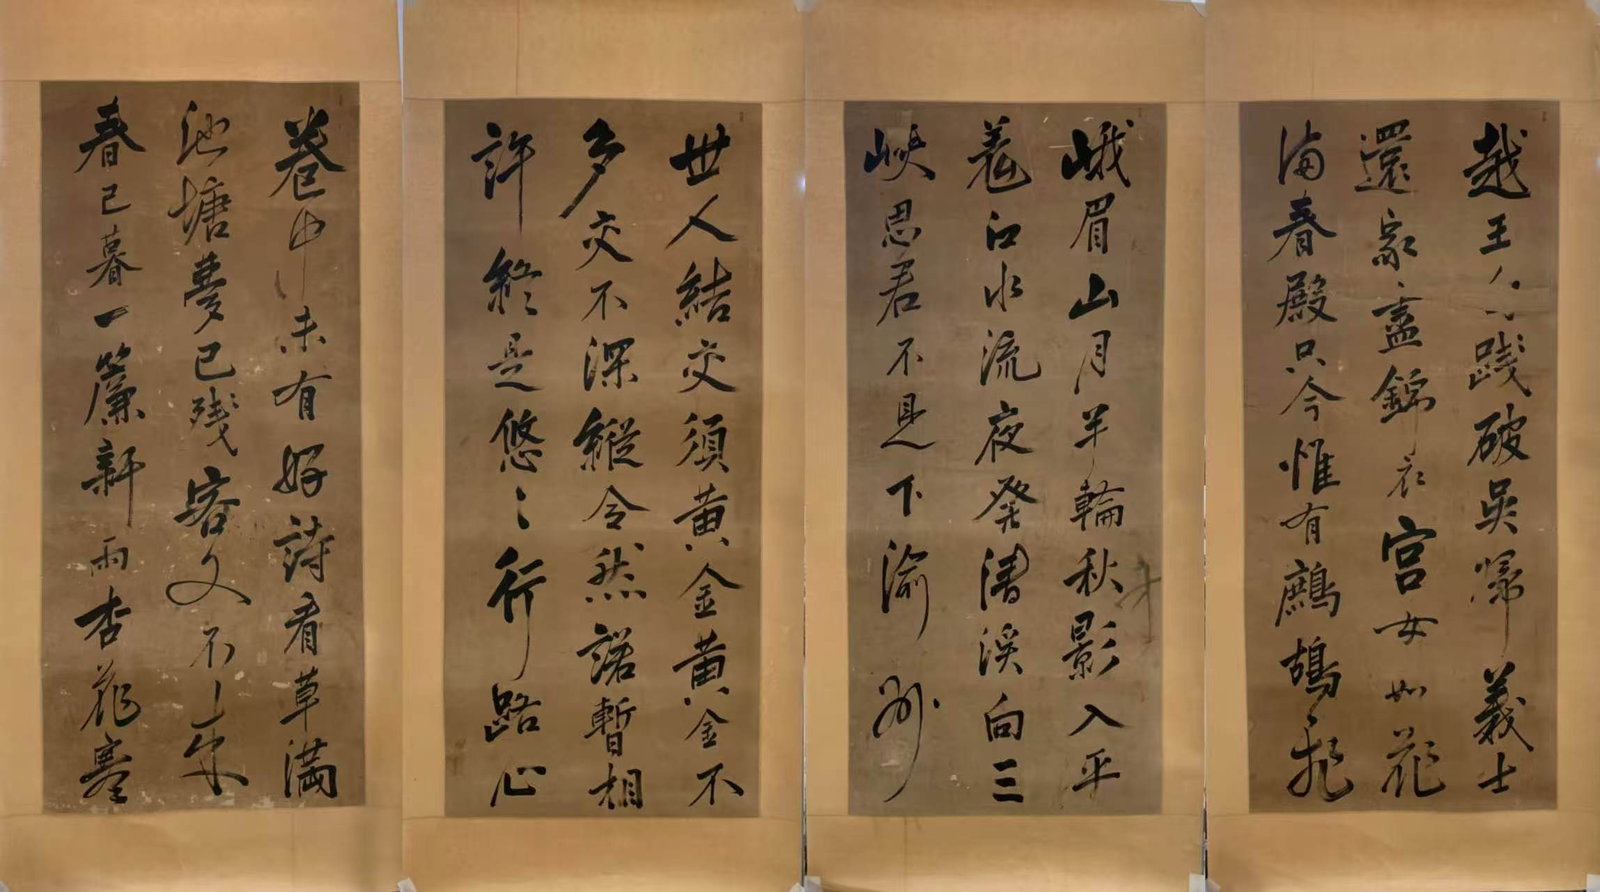 越王勾踐破吳歸義士
還家盡錦衣宮女如花
滿春殿只今惟有鷓鴣飛
峨眉山月半輪秋影入平
羌江水流夜發清溪向三
峽思君不見下渝州
世人結交須黃金黃金不
多交不深縱令然諾暫相
許終是悠〻行路心
卷中未有好詩看草滿
池塘夢已殘客久不來
春已暮一簾新雨杏花寒